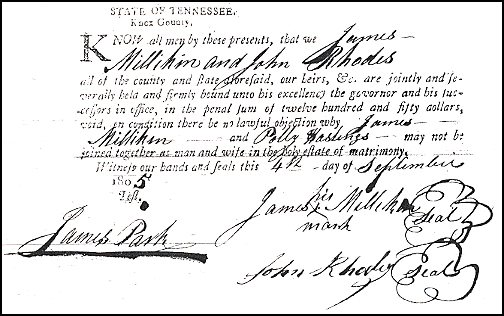 STATE OF TENNESSEE.
Knox County.
KNOW all men by these presents, that we James
Millikin and John Rhodes
all of the county and state aforesaid, our heirs, &c. are jointly and se-
verally held and firmly bound unto his excellency the governor and his suc-
cessors in office, in the penal sum of twelve hundred and fifty dollars,
void, on condition there be no lawful objection why James
Millikin and Polly Hastings may not be
joined together as man and wife in the holy estate of matrimony.
Witness our hands and seals this 4th day of September
1805
Test.
James his Millikin Seal
mark
James Park
John Rhodes Seal